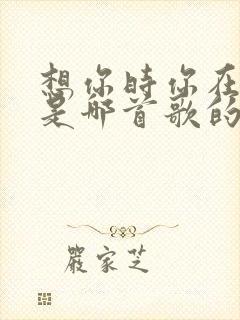 想你时你在
是哪首歌的
嚴家芝